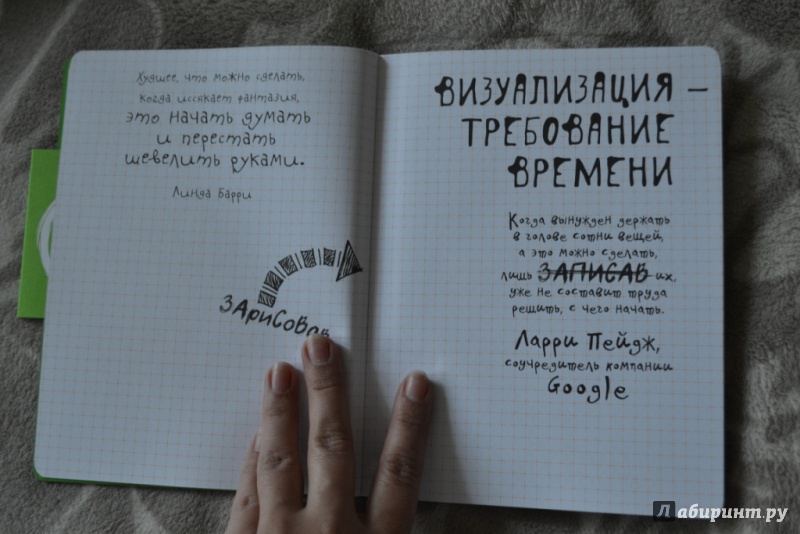 Худшее, что можно сделать,
когда иссякает фантазия,
это начать думать
и перестать
шевелить руками.
Линда Барри
ЗАРИСОВАВ
ВИЗУАЛИЗАЦИЯ –
ТРЕБОВАНИЕ
ВРЕМЕНИ
Когда вынужден держать
в голове сотни вещей,
а это можно сделать,
лишь ЗАПИСАВ их,
уже не составит труда
решить, с чего начать.
Ларри Пейдж,
соучредитель компании
Google
Лабиринт.ру